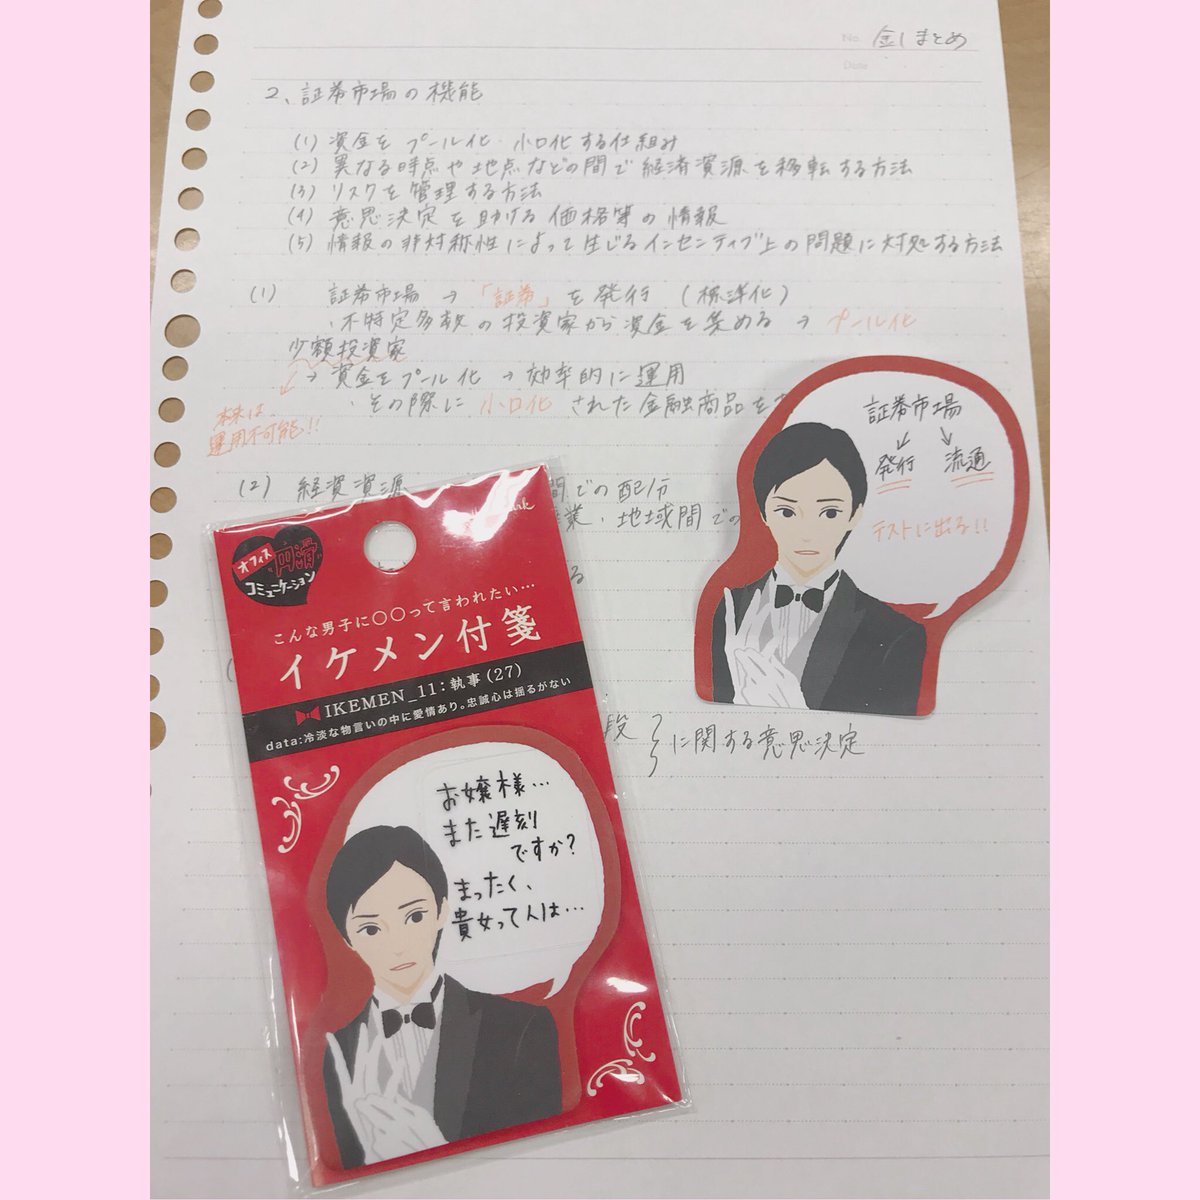 No. 金しまとめ
Date
2、証券市場の機能
(1) 資金をプール化・小口化する仕組み
(2) 異なる時点や地点などの間で経済資源を移転する方法
(3) リスクを管理する方法
(4) 意思決定を助ける価格等の情報
(5) 情報の非対称性によって生じるインセンティブ上の問題に対処する方法
(1) 証券市場→「証券」を発行 (標準化)
・不特定多数の投資家から資金を集める→プール化
少額投資家
→資金をプール化→効率的に運用
・その際に小口化された金融商品を
本来は
運用不可能!!
(2) 経済資源
間での配分
業・地域間での
る
段
に関する意思決定
証券市場
発行 流通
テストに出る!!
オフィス
円滑
コミュニケーション
こんな男子に〇〇って言われたい…
イケメン付箋
IKEMEN_11:執事(27)
data:冷淡な物言いの中に愛情あり。忠誠心は揺るがない
お嬢様…
また遅刻
ですか?
まったく、
貴女って人は…